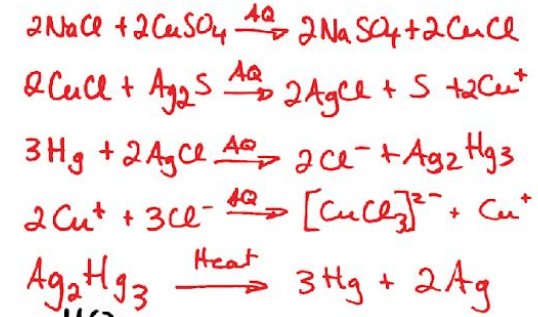 2NaCl + 2CuSO₄ —AQ→ 2NaSO₄ + 2CuCl
2CuCl + Ag₂S —AQ→ 2AgCl + S + 2Cu⁺
3Hg + 2AgCl —AQ→ 2Cl⁻ + Ag₂Hg₃
2Cu⁺ + 3Cl⁻ —AQ→ [CuCl₃]²⁻ + Cu⁺
Ag₂Hg₃ —Heat→ 3Hg + 2Ag